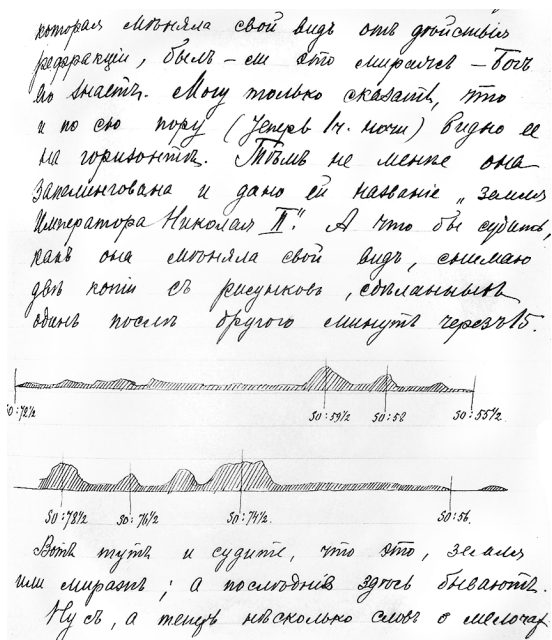 которая мѣняла свой видъ отъ дѣйствія
рефракціи, былъ-ли это миражъ – Богъ
его знаетъ. Могу только сказать, что
и по сю пору (теперь 1 ч. ночи) видно ее
на горизонтѣ. Тѣмъ не менѣе она
запеленгована и дано ей названіе „Земля
Императора Николая II". А что бы судить,
какъ она мѣняла свой видъ, снимаю
двѣ копіи съ рисунковъ, сдѣланныхъ
одинъ послѣ другого минутъ черезъ 15.
SO:72½ SO:59½ SO:58 SO:55½
SO:78½ SO:76½ SO:74½ SO:56.
Вотъ тутъ и судите, что это, земля
или миражъ; а послѣдніе здѣсь бываютъ.
Ну съ, а теперь нѣсколько словъ о мелочах